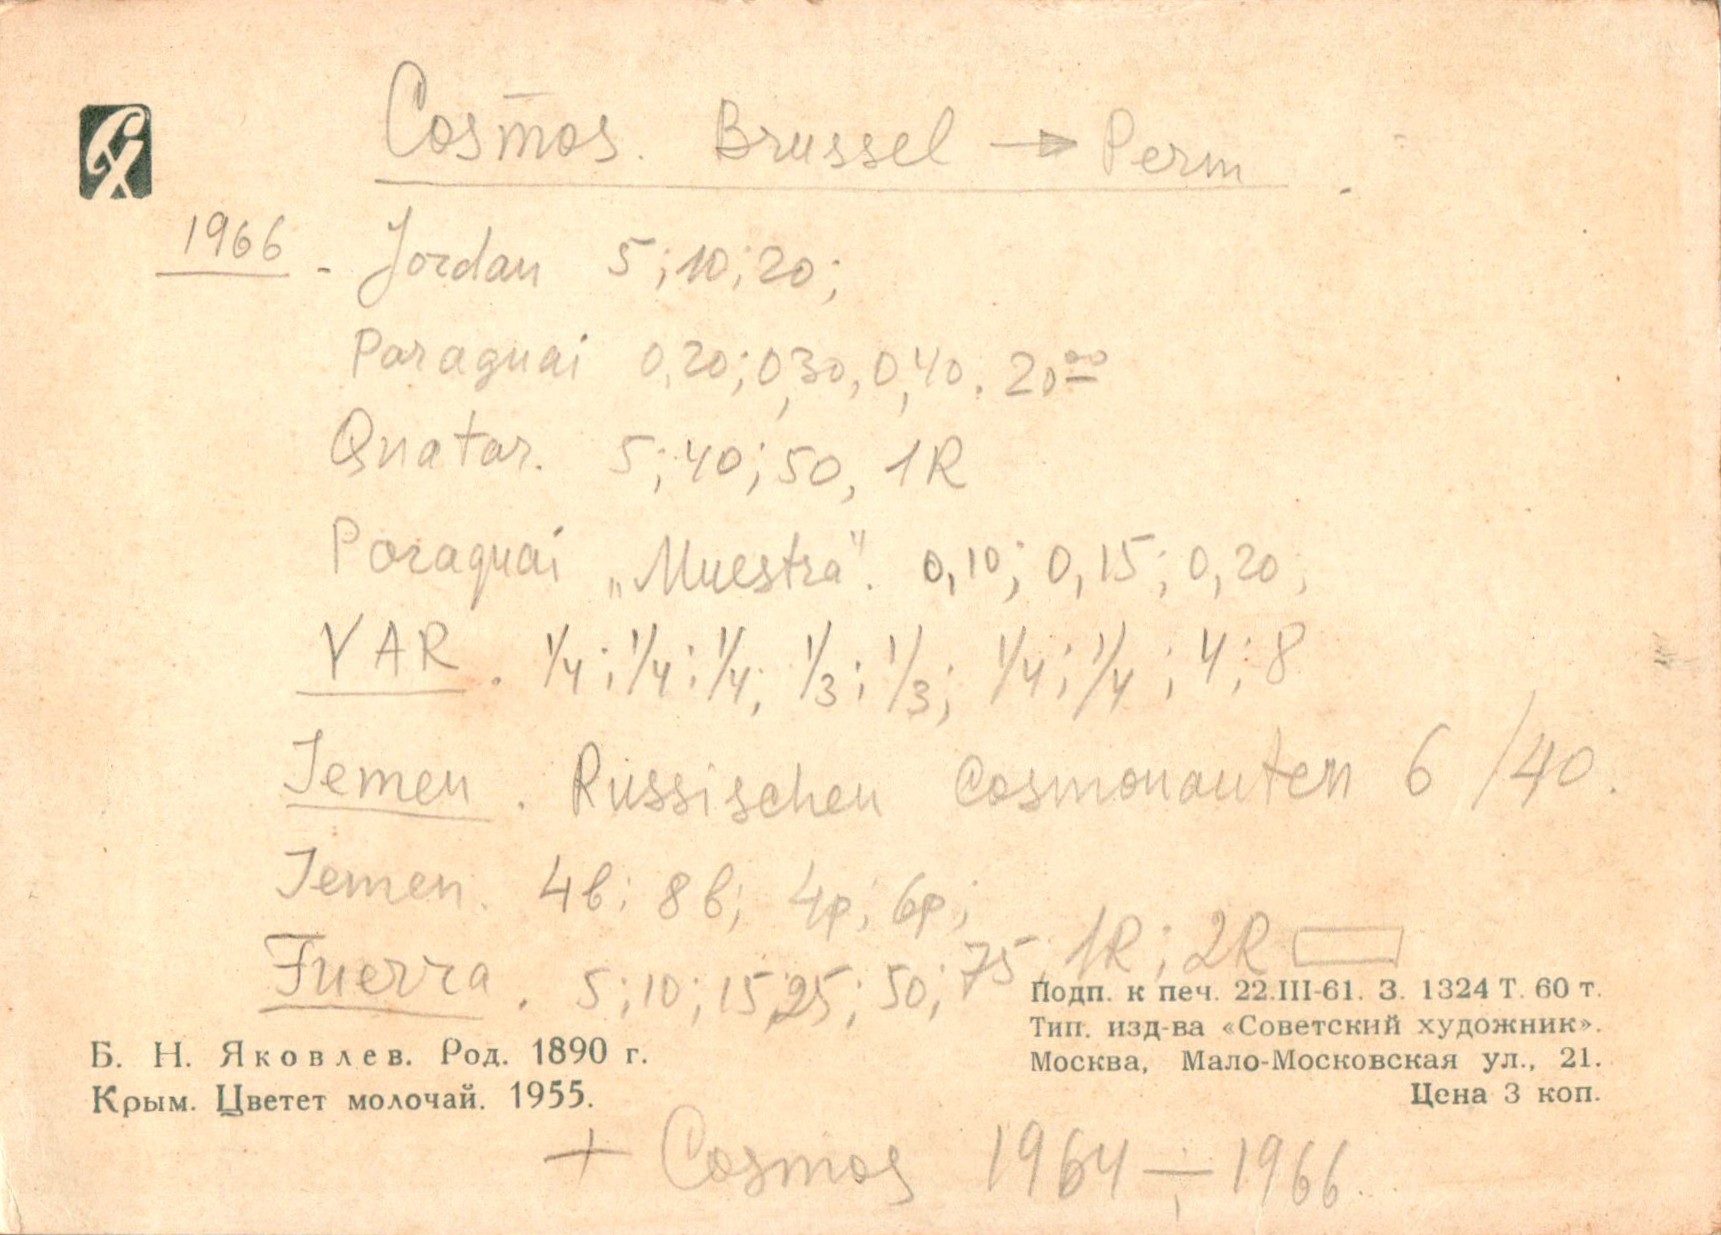 Cosmos. Brussel → Perm.
1966 - Jordan 5; 10; 20;
Paraguai 0,20; 0,30, 0,40. 20 00
Quatar. 5; 40; 50, 1R
Paraguai „Muestra". 0,10; 0,15; 0,20;
YAR. 1/4; 1/4; 1/4; 1/3; 1/3; 1/4; 1/4; 4; 8
Jemen. Russischen Cosmonauten 6 /40.
Jemen. 4b; 8b; 4p; 6p;
Fuerra. 5; 10; 15 25; 50; 75, 1R; 2R
Подп. к печ. 22.III-61. З. 1324 Т. 60 т.
Тип. изд-ва «Советский художник».
Москва, Мало-Московская ул., 21.
Цена 3 коп.
Б. Н. Яковлев. Род. 1890 г.
Крым. Цветет молочай. 1955.
+ Cosmos 1964 ÷ 1966.